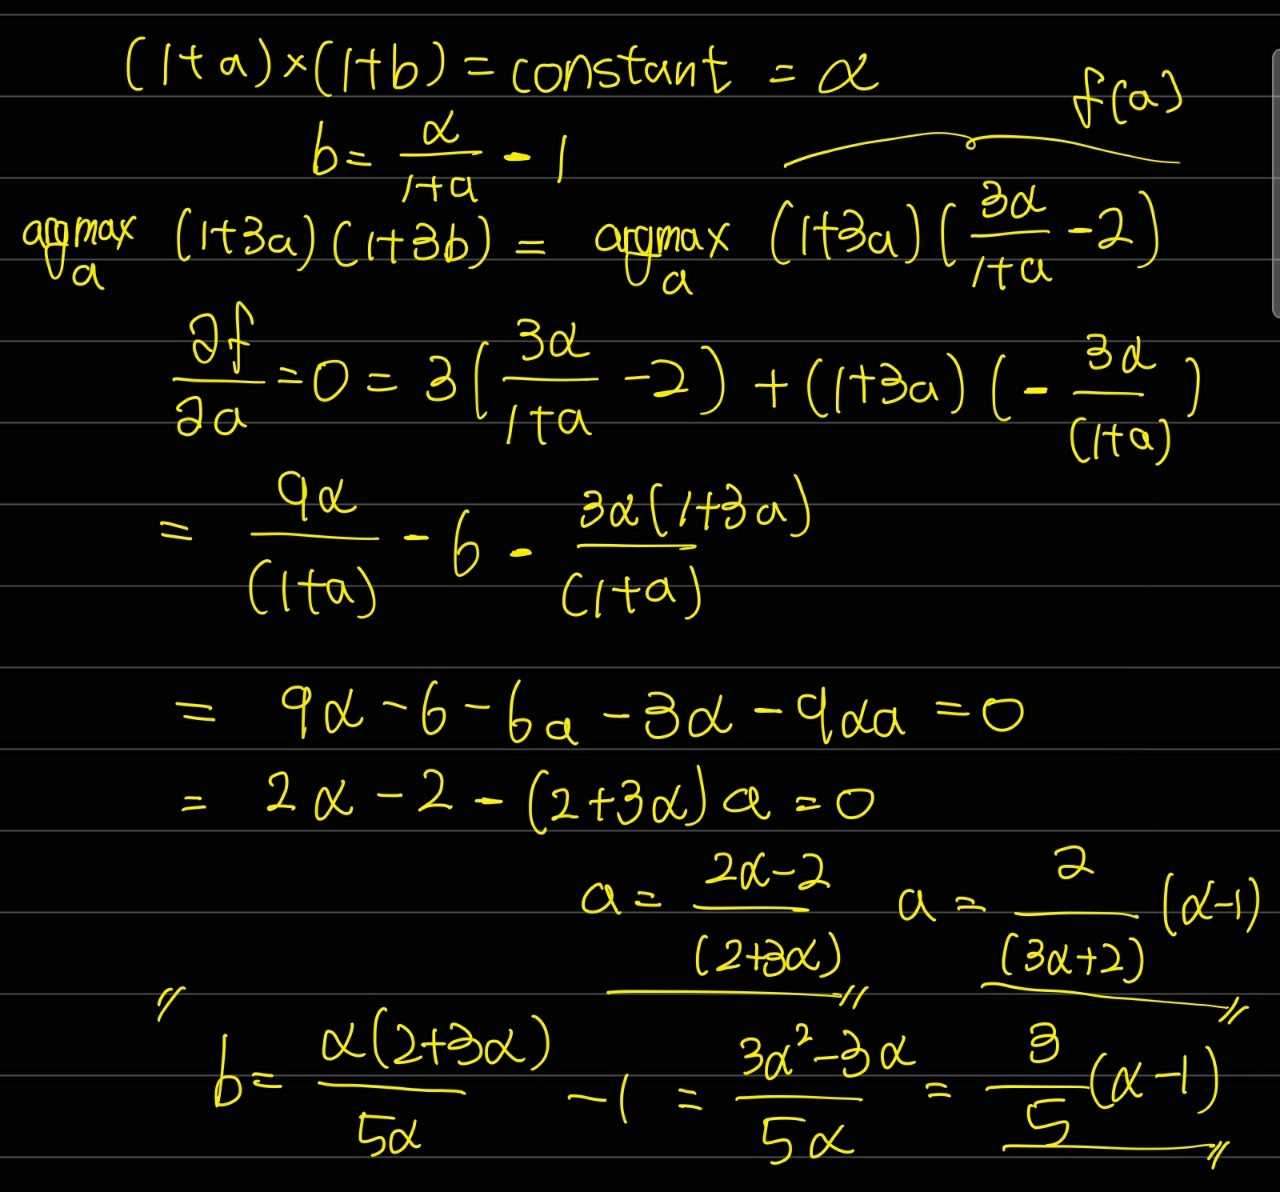 (1+a)×(1+b) = constant = α
f(a)
b = α/(1+a) - 1
argmax_a (1+3a)(1+3b) = argmax_a (1+3a)(3α/(1+a) - 2)
∂f/∂a = 0 = 3(3α/(1+a) - 2) + (1+3a)(- 3α/(1+a))
= 9α/(1+a) - 6 - 3α(1+3a)/(1+a)
= 9α - 6 - 6a - 3α - 9αa = 0
= 2α - 2 - (2+3α)a = 0
a = (2α-2)/(2+3α) a = 2/(3α+2) (α-1)
〃 b = α(2+3α)/5α - 1 = (3α²-3α)/5α = 3/5 (α-1)